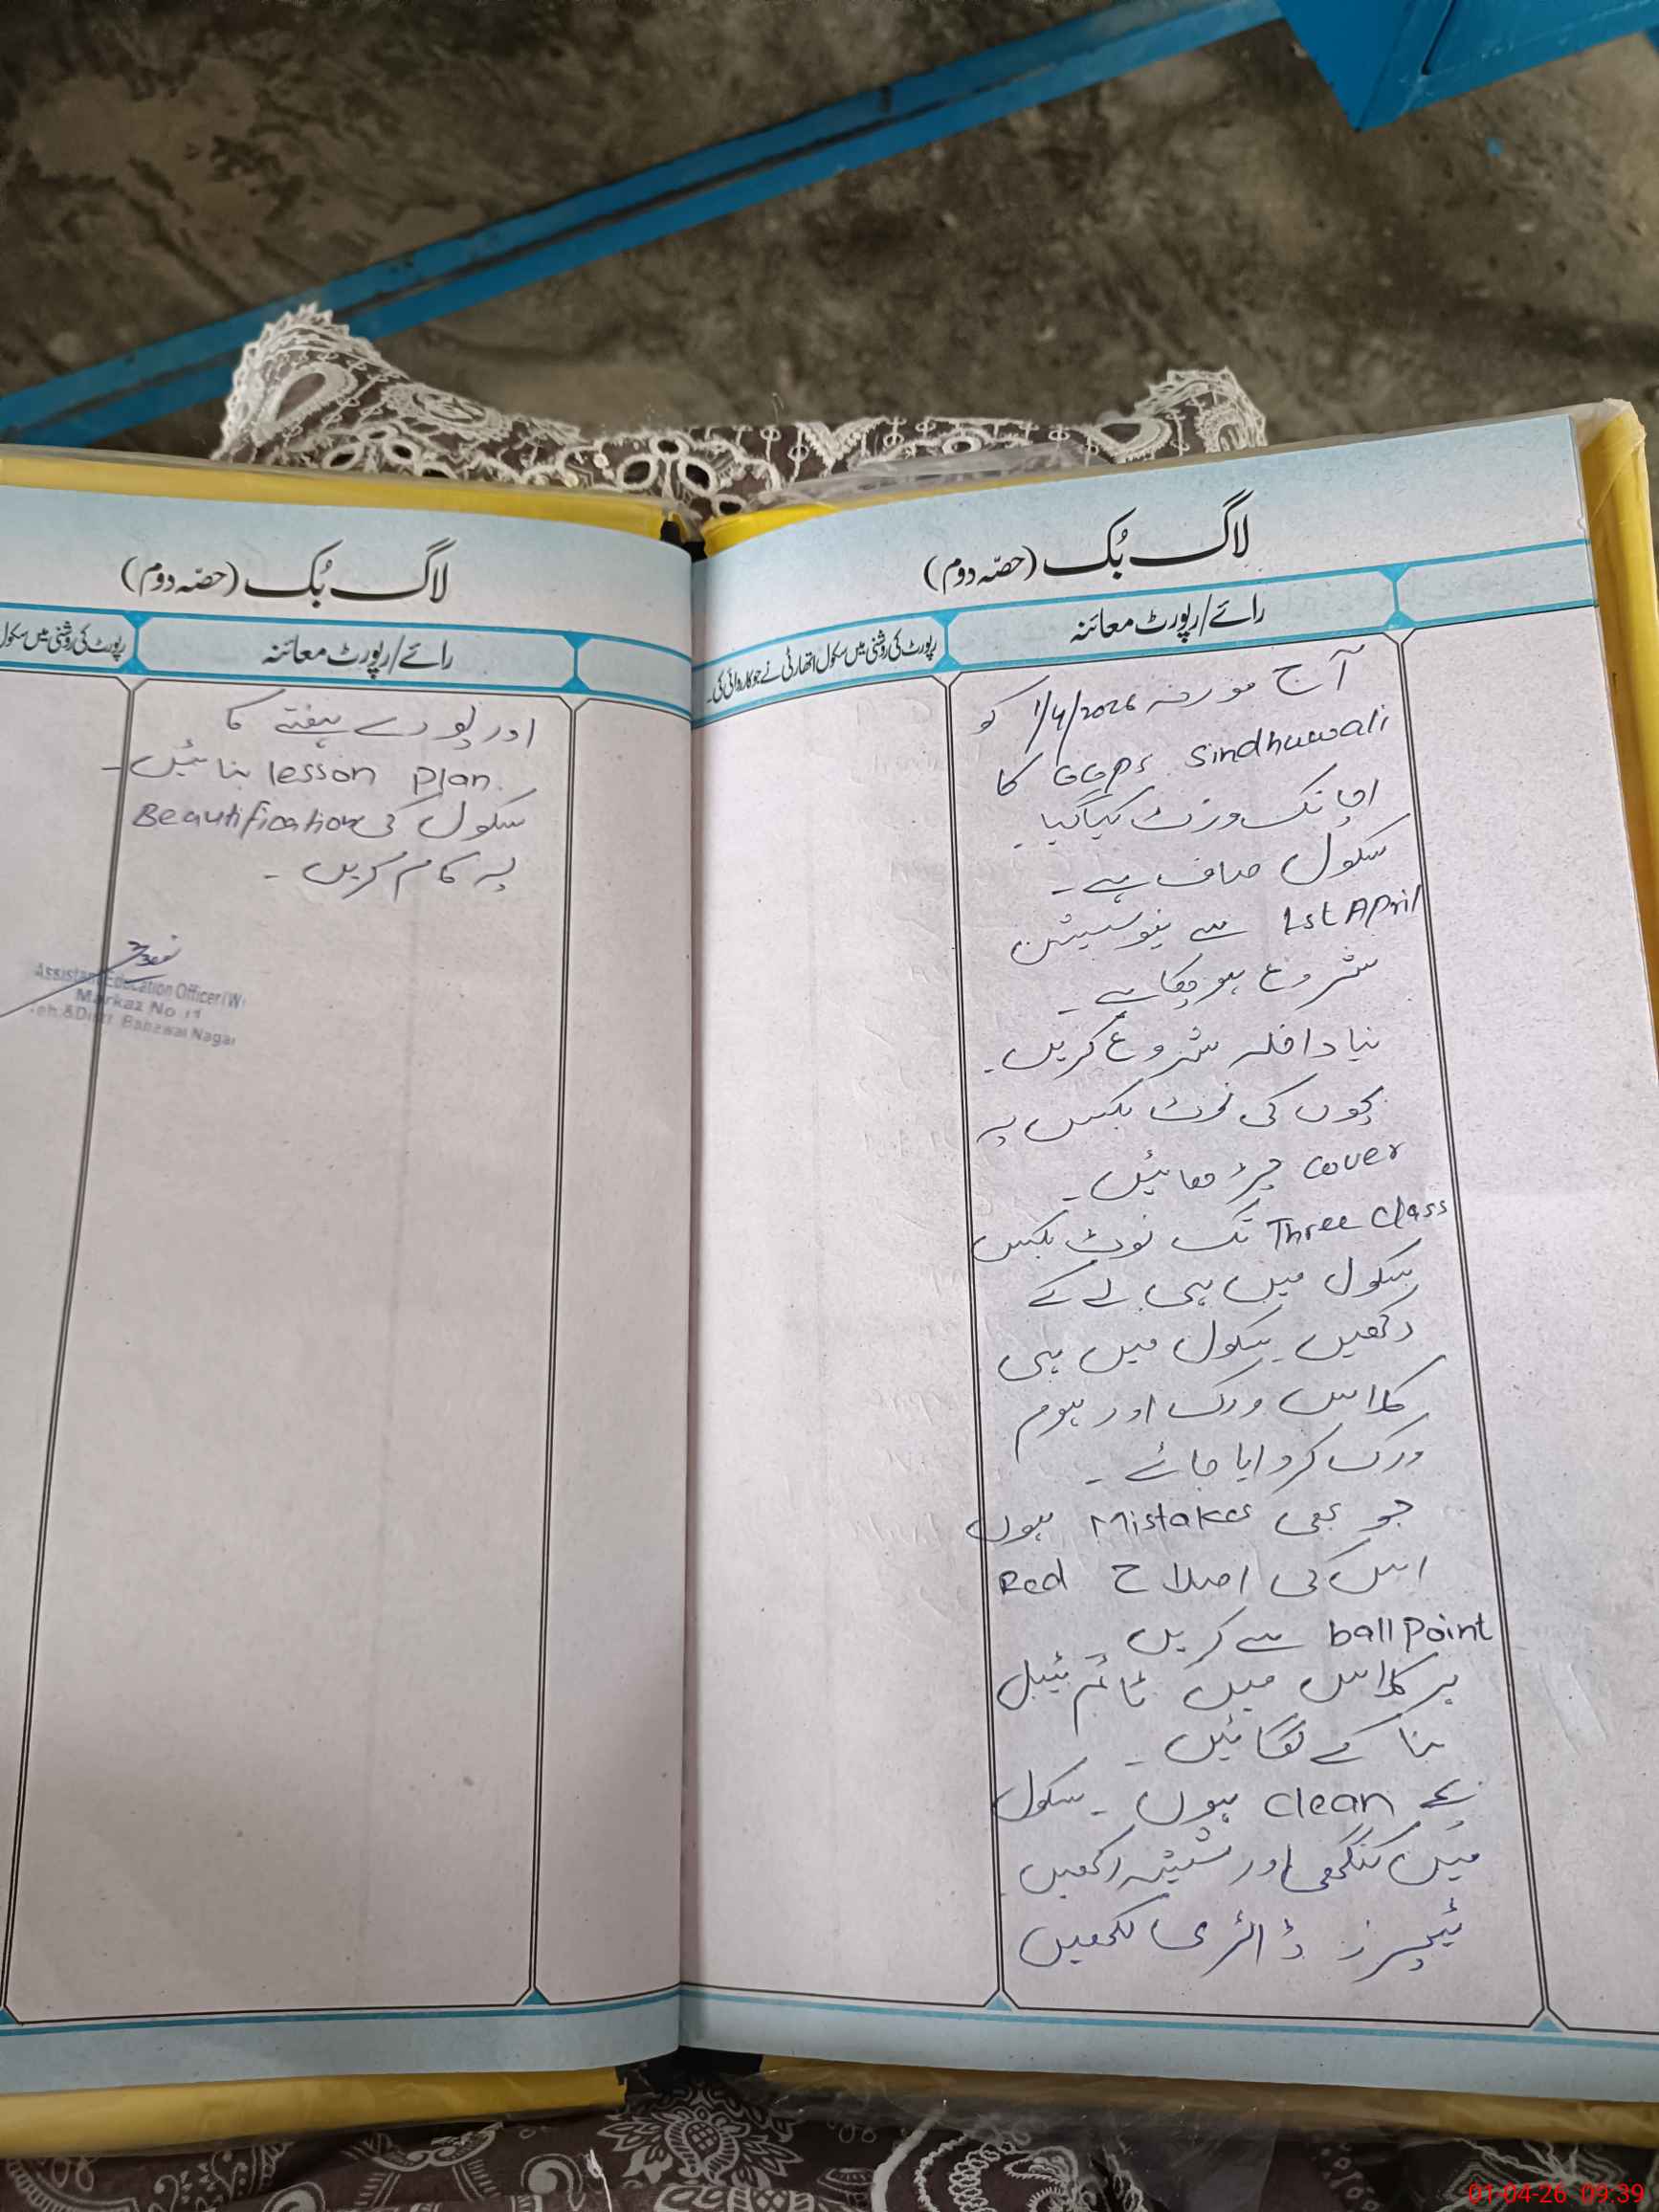 لاگ بُک (حصّہ دوم)
رائے/رپورٹ معائنہ
رپورٹ کی روشنی میں سکول اتھارٹی نے جو کاروائی کی۔
آج مورخہ 1/4/2026 کو
GGPS Sindhuwali کا
اچانک وزٹ کیا گیا۔
سکول صاف ہے۔
1st April سے نیو سیشن
شروع ہو چکا ہے۔
نیا داخلہ شروع کریں۔
بچوں کی نوٹ بکس پہ
cover چڑھائیں۔
Three Class تک نوٹ بکس
سکول میں ہی لے کے
رکھیں۔ سکول میں ہی
کلاس ورک اور ہوم
ورک کروایا جائے۔
جو بھی Mistakes ہوں
اس کی اصلاح Red
ball Point سے کریں۔
ہر کلاس میں ٹائم ٹیبل
بنا کے لگائیں۔
بچے clean ہوں۔ سکول
میں کنگھی اور شیشہ رکھیں۔
ٹیچرز ڈائری لکھیں
لاگ بُک (حصّہ دوم)
رائے/رپورٹ معائنہ
رپورٹ کی روشنی میں سکول
اور پورے ہفتے کا
lesson plan بنائیں۔
سکول کی Beautification
پہ کام کریں۔
Assistant Education Officer (W)
Markaz No 11
Teh & Distt Bahawal Nagar
01-04-26 09:39